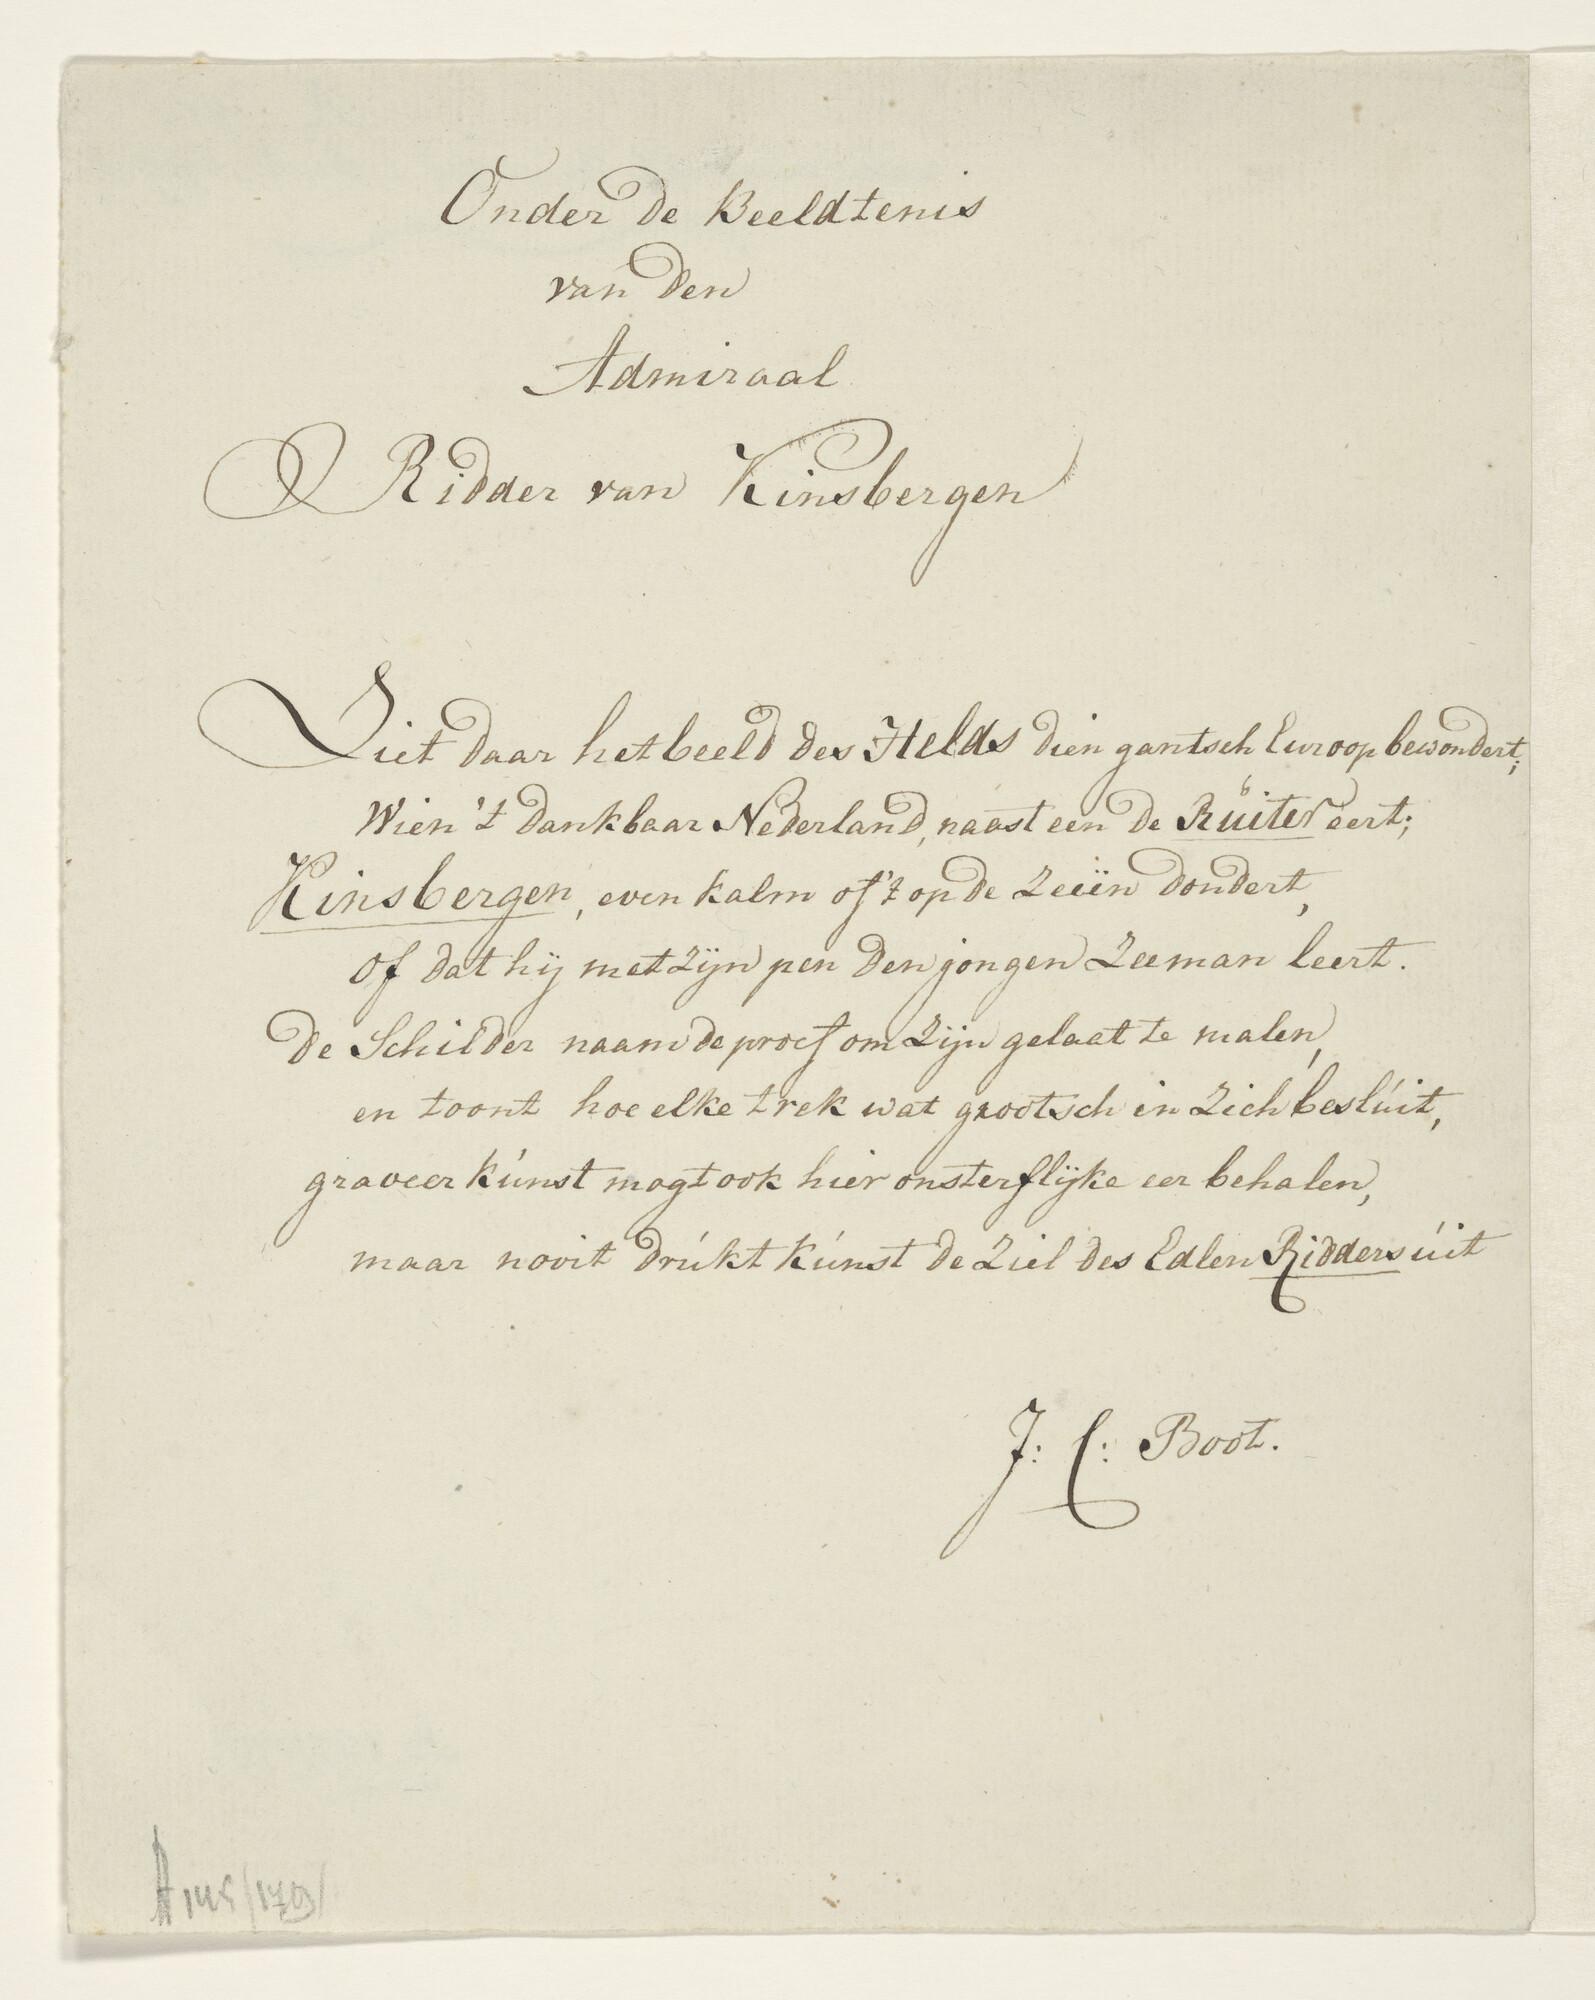 Onder de Beeldtenis
van den
Admiraal
Ridder van Kinsbergen
Ziet daar het beeld des Helds dien gantsch Euroop bewondert;
Wien 't dankbaar Nederland, naast een de Rüiter eert;
Kinsbergen, even kalm of 't op de Zeeën dondert,
of dat hij met zijn pen den jongen Zeeman leert.
De Schilder naam de proef om zijn gelaat te malen,
en toont hoe elke trek wat grootsch in zich beslúit,
graveerkúnst mogt ook hier onsterflijke eer behalen,
maar nooit drúkt kúnst de Ziel des Edlen Ridders úit
J: C: Boot.